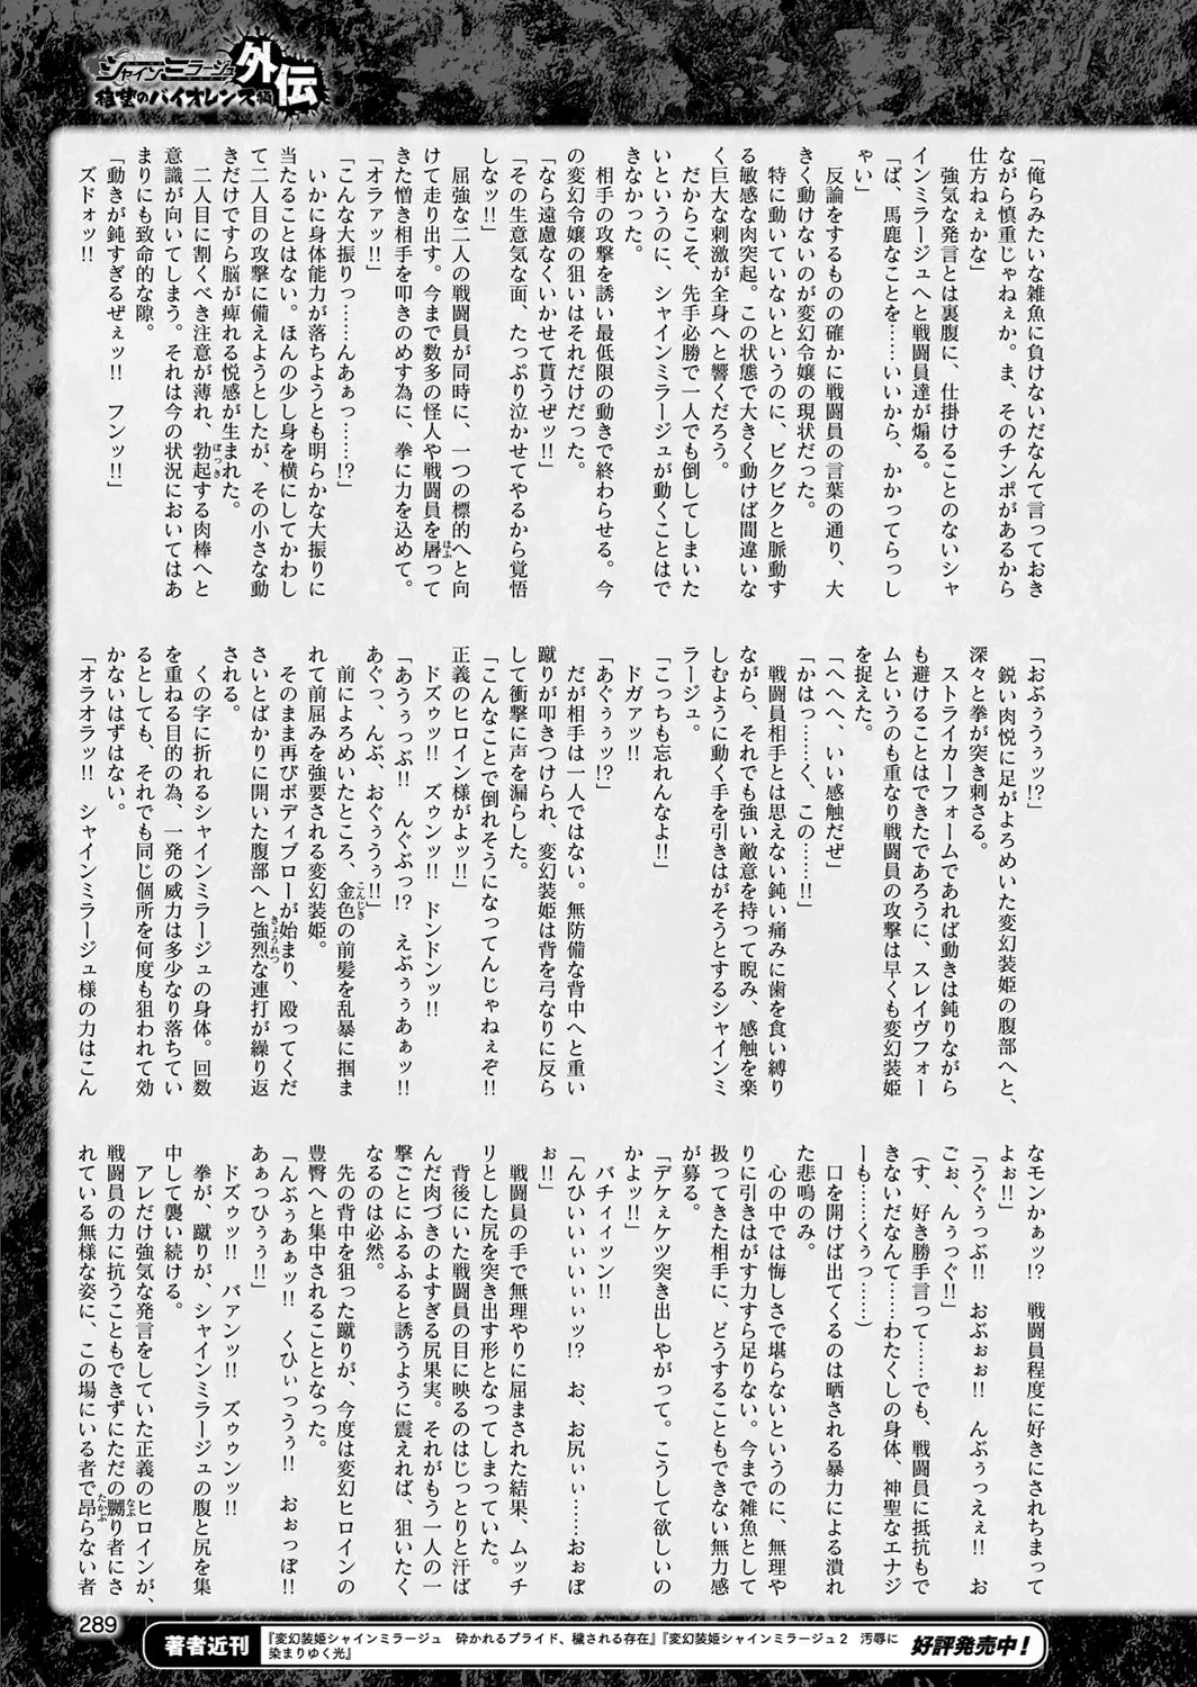 シャインミラージュ外伝
待望のバイオレンス編
「俺らみたいな雑魚に負けないだなんて言っておき
ながら慎重じゃねぇか。ま、そのチンポがあるから
仕方ねぇかな」
強気な発言とは裏腹に、仕掛けることのないシャ
インミラージュへと戦闘員達が煽る。
「ば、馬鹿なことを……いいから、かかってらっし
ゃい」
反論をするものの確かに戦闘員の言葉の通り、大
きく動けないのが変幻令嬢の現状だった。
特に動いていないというのに、ビクビクと脈動す
る敏感な肉突起。この状態で大きく動けば間違いな
く巨大な刺激が全身へと響くだろう。
だからこそ、先手必勝で一人でも倒してしまいた
いというのに、シャインミラージュが動くことはで
きなかった。
相手の攻撃を誘い最低限の動きで終わらせる。今
の変幻令嬢の狙いはそれだけだった。
「なら遠慮なくいかせて貰うぜッ!!」
「その生意気な面、たっぷり泣かせてやるから覚悟
しなッ!!」
屈強な二人の戦闘員が同時に、一つの標的へと向
けて走り出す。今まで数多の怪人や戦闘員を屠って
きた憎き相手を叩きのめす為に、拳に力を込めて。
「オラァッ!!」
「こんな大振りっ……んあぁっ……!?」
いかに身体能力が落ちようとも明らかな大振りに
当たることはない。ほんの少し身を横にしてかわし
て二人目の攻撃に備えようとしたが、その小さな動
きだけですら脳が痺れる悦感が生まれた。
二人目に割くべき注意が薄れ、勃起する肉棒へと
意識が向いてしまう。それは今の状況においてはあ
まりにも致命的な隙。
「動きが鈍すぎるぜぇッ!! フンッ!!」
ズドォッ!!
「おぶぅうぅッ!?」
鋭い肉悦に足がよろめいた変幻装姫の腹部へと、
深々と拳が突き刺さる。
ストライカーフォームであれば動きは鈍りながら
も避けることはできたであろうに、スレイヴフォー
ムというのも重なり戦闘員の攻撃は早くも変幻装姫
を捉えた。
「へへへ、いい感触だぜ」
「かはっ……く、この……!!」
戦闘員相手とは思えない鈍い痛みに歯を食い縛り
ながら、それでも強い敵意を持って睨み、感触を楽
しむように動く手を引きはがそうとするシャインミ
ラージュ。
「こっちも忘れんなよ!!」
ドガァッ!!
「あぐぅぅッ!?」
だが相手は一人ではない。無防備な背中へと重い
蹴りが叩きつけられ、変幻装姫は背を弓なりに反ら
して衝撃に声を漏らした。
「こんなことで倒れそうになってんじゃねぇぞ!!
正義のヒロイン様がよッ!!」
ドズゥッ!! ズゥンッ!! ドンドンッ!!
「あうぅっぶ!! んぐぶっ!? えぶぅぅあぁッ!!
あぐっ、んぶ、おぐぅうぅ!!」
前によろめいたところ、金色の前髪を乱暴に掴ま
れて前屈みを強要される変幻装姫。
そのまま再びボディブローが始まり、殴ってくだ
さいとばかりに開いた腹部へと強烈な連打が繰り返
される。
くの字に折れるシャインミラージュの身体。回数
を重ねる目的の為、一発の威力は多少なり落ちてい
るとしても、それでも同じ個所を何度も狙われて効
かないはずはない。
「オラオラッ!! シャインミラージュ様の力はこん
なモンかぁッ!? 戦闘員程度に好きにされちまって
よぉ!!」
「うぐぅっぶ!! おぶぉぉ!! んぶぅっえぇ!! お
ごぉ、んぅっぐ!!」
(す、好き勝手言って……でも、戦闘員に抵抗もで
きないだなんて……わたくしの身体、神聖なエナジ
ーも……くぅっ……)
口を開けば出てくるのは晒される暴力による潰れ
た悲鳴のみ。
心の中では悔しさで堪らないというのに、無理や
りに引きはがす力すら足りない。今まで雑魚として
扱ってきた相手に、どうすることもできない無力感
が募る。
「デケぇケツ突き出しやがって。こうして欲しいの
かよッ!!」
バチィィッン!!
「んひいぃいぃいぃぃッ!? お、お尻ぃぃ……おぉぽ
ぉ!!」
戦闘員の手で無理やりに屈まされた結果、ムッチ
リとした尻を突き出す形となってしまっていた。
背後にいた戦闘員の目に映るのはじっとりと汗ば
んだ肉づきのよすぎる尻果実。それがもう一人の一
撃ごとにふるふると誘うように震えれば、狙いたく
なるのは必然。
先の背中を狙った蹴りが、今度は変幻ヒロインの
豊臀へと集中されることとなった。
「んぶぅあぁッ!! くひぃっうぅ!! おぉっぽ!!
あぁっひぅぅ!!」
ドズゥッ!! バァンッ!! ズゥゥンッ!!
拳が、蹴りが、シャインミラージュの腹と尻を集
中して襲い続ける。
アレだけ強気な発言をしていた正義のヒロインが、
戦闘員の力に抗うこともできずにただの嬲り者にさ
れている無様な姿に、この場にいる者で昂らない者
289
著者近刊
『変幻装姫シャインミラージュ 砕かれるプライド、穢される存在』『変幻装姫シャインミラージュ2 汚辱に
染まりゆく光』
好評発売中!